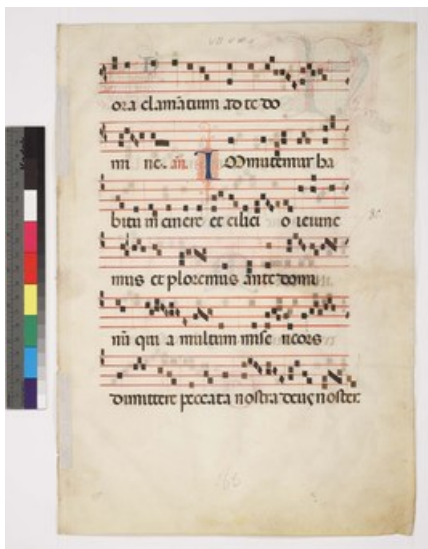 ora clamātium ad te do
mi ne. añ. I Mmutemur ha
bitu in cinere et cilici o ieiune
mus et ploremus ante domi
nū qui a multum mise ricors
dimittere peccata nostra deus noster.